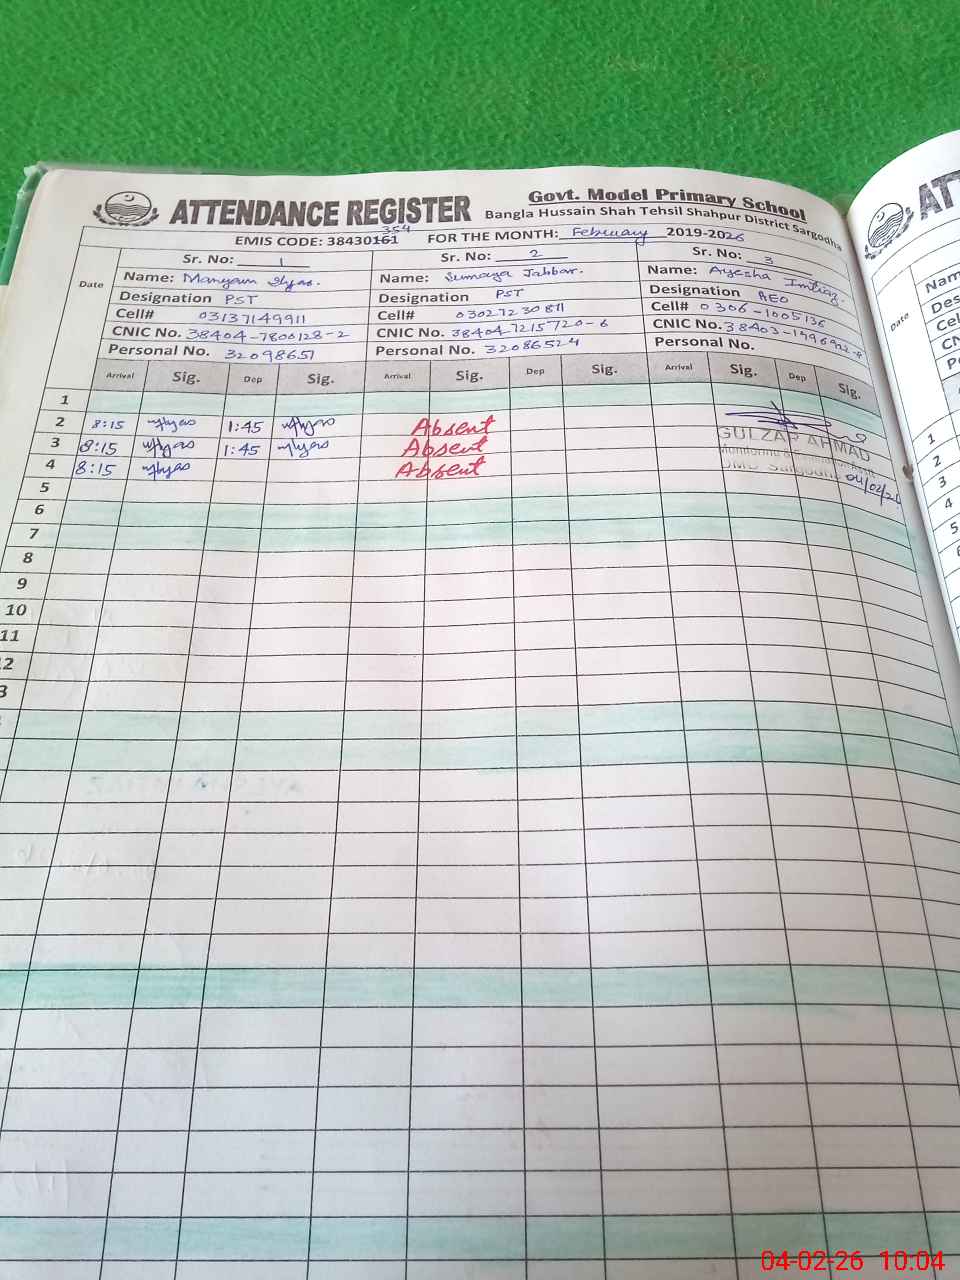 ATTENDANCE REGISTER
Govt. Model Primary School
Bangla Hussain Shah Tehsil Shahpur District Sargodha
354
EMIS CODE: 38430161 FOR THE MONTH: February 2019-2026
Date
Sr. No: 1
Name: Maryam Ilyas.
Designation PST
Cell# 03137149911
CNIC No. 38404-7800128-2
Personal No. 32098651
Sr. No: 2
Name: Sumaya Jabbar.
Designation PST
Cell# 03027230811
CNIC No. 38404 7215720-6
Personal No. 32086524
Sr. No: 3
Name: Ayesha Imtiaz.
Designation AEO
Cell# 0306-1005136
CNIC No. 38403-1996922-8
Personal No.
Arrival Sig. Dep Sig. Arrival Sig. Dep Sig. Arrival Sig. Dep Sig.
1
2 8:15 Ilyas 1:45 Ilyas Absent
3 8:15 Ilyas 1:45 Ilyas Absent
4 8:15 Ilyas Absent
GULZAR AHMAD
Monitoring
DMO Sargodha
04/02/26
5
6
7
8
9
10
11
12
3
ATT
Nam
Des
Cel
CN
Pe
Date
1
2
3
4
5
6
04-02-26 10:04